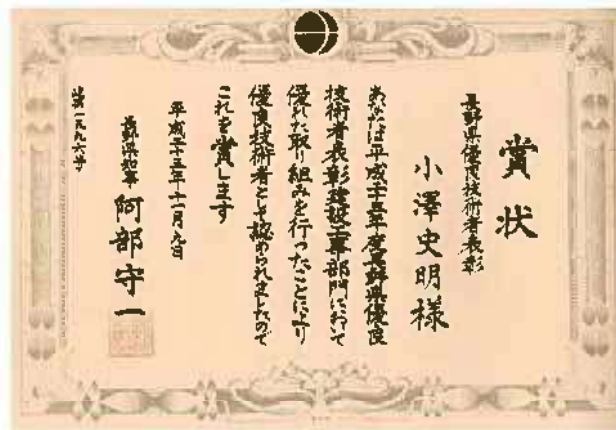 賞状
長野県優良技術者表彰
小澤史明様
あなたは平成二十五年度長野県優良
技術者表彰建設工事部門において
優れた取り組みを行ったことにより
優良技術者として認められましたので
これを賞します
平成二十五年十一月九日
長野県知事 阿部守一